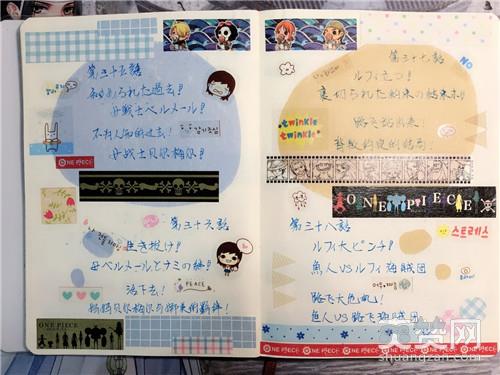 第三十五話
秘められた過去!
女戦士ベルメール!
不为人知的过去!
女战士贝尔梅尔!
ONE PIECE
第三十六話
生き抜け!
母ベルメールとナミの絆!
活下去!
PEACE
妈妈贝尔梅尔与娜美的羁绊!
ONE PIECE
ONE PIECE
第三十七話
NO
ルフィ立つ!
裏切られた約束の結末!
twinkle
twinkle
路飞站出来!
背叛约定的结局!
ONE PIECE
第三十八話
스트레스
ルフィ大ピンチ!
魚人VSルフィ海賊団
路飞大危机!
鱼人VS路飞海贼团
ONE PIECE ONE PIECE ONE PIECE
shuangzan.com